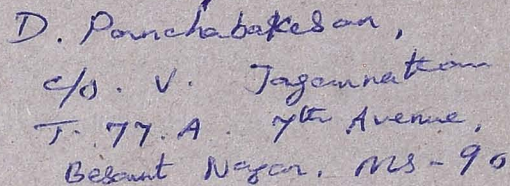 D. Panchabakesan,
c/o. V. Jagannathan
T. 77. A. 7th Avenue,
Besant Nagar. MS - 90